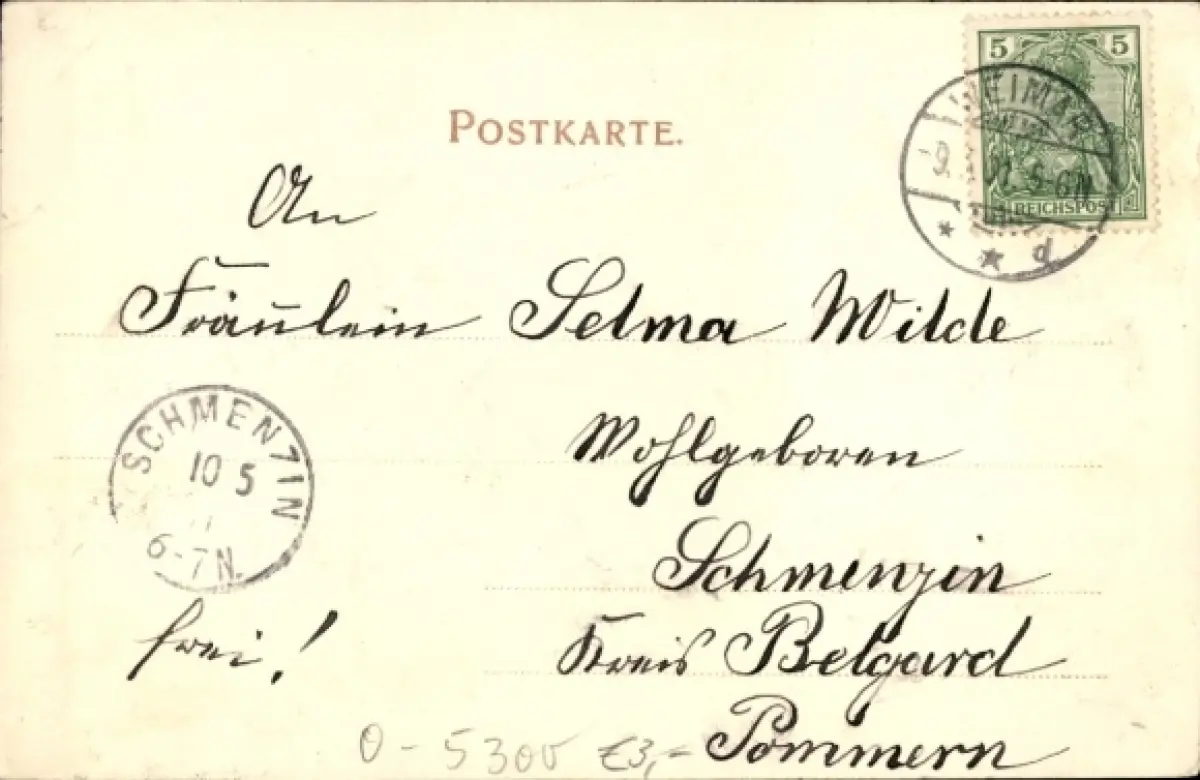 POSTKARTE.
5 5
REICHSPOST
WEIMAR
-9. 5-6N
* * d
An
Fräulein Selma Wilde
Wohlgeboren
SCHMENZIN
10 5
6-7N.
Schmenzin
frei!
Kreis Belgard
Pommern
0-5300 €3,-